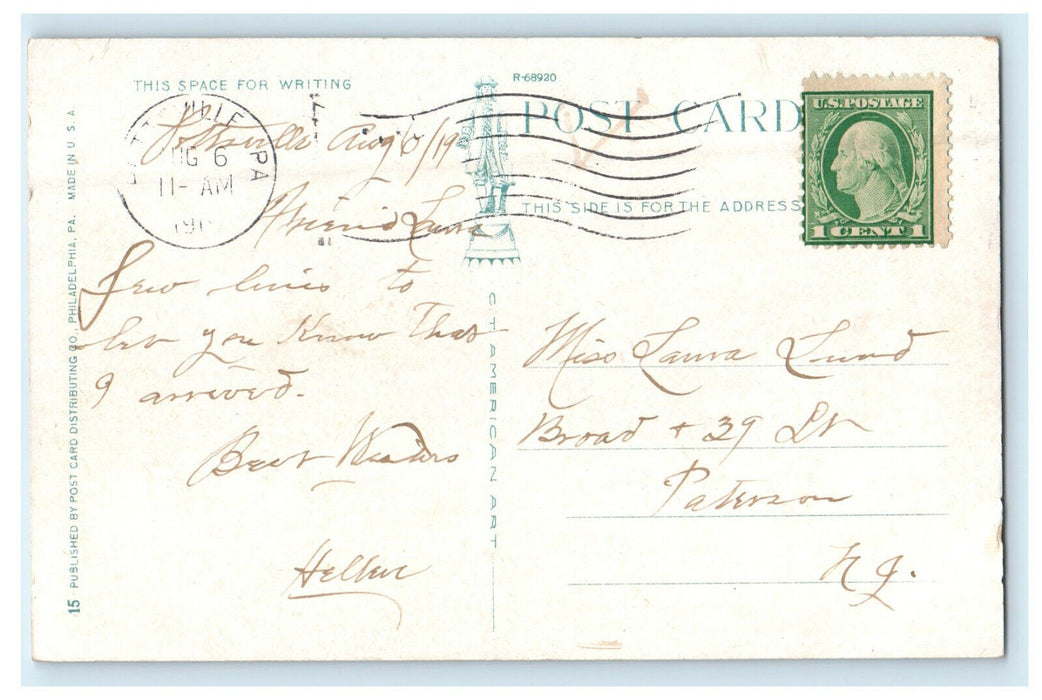 THIS SPACE FOR WRITING
R-68920
POST CARD
U.S. POSTAGE
1 CENT 1
THIS SIDE IS FOR THE ADDRESS
VILLE PA
UG 6
11- AM
191
Pottsville Aug 6/19
Friend Laura
few lines to
let you Know That
I arrived.
Best Wishes
Hellen
Miss Laura Lund
Broad + 39 St
Paterson
N J.
C T AMERICAN ART
15 PUBLISHED BY POST CARD DISTRIBUTING CO., PHILADELPHIA, PA. MADE IN U. S. A.